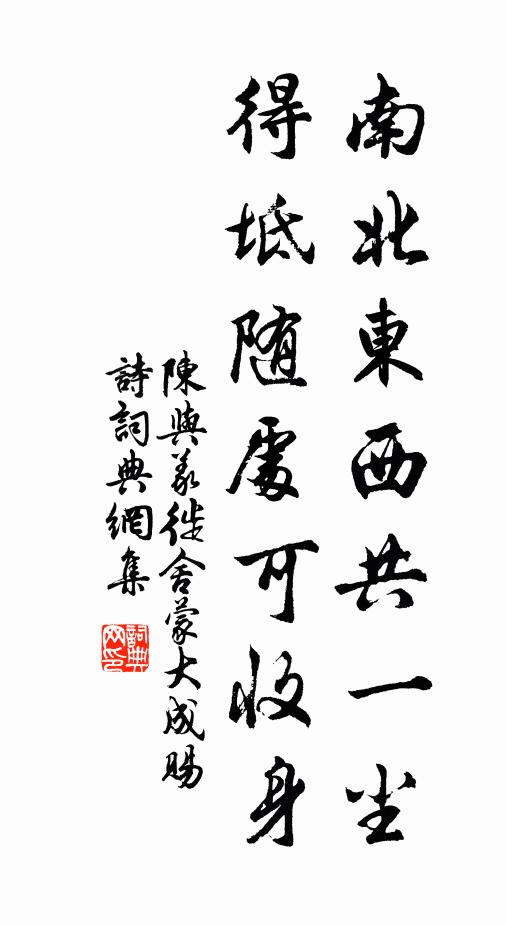 南北東西共一尘
得坻随處可收身
陳與義徙舍蒙大成賜
詩詞典網集
詞典网印